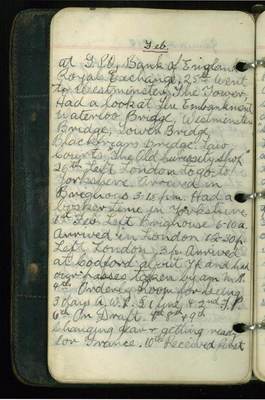 Feb.
at G.P.O., Bank of England
Royal Exchange, 25th Went
to Westminster, The Tower,
Had a look at the Embankment
Waterloo Bridge, Westminster
Bridge, Tower Bridge
Blackfriars Bridge, Law
Courts, The Old Curiosity Shop"
26th Left London to go to
Yorkshire. Arrived in
3.15 p.m. Had a
time in Yorkshire,
1st Feb. Left Brighouse 6-10 a.
Arrived in London
Left London, 3 p. Arrived
at Codford about 7 p and had
our passes taken by
4th Orderly Room for being
3 days A.W.L. £1 fine & 2nd F.P.
6th On Draft. 8th 9th
Changing gear & getting ready
for France. 10th Received